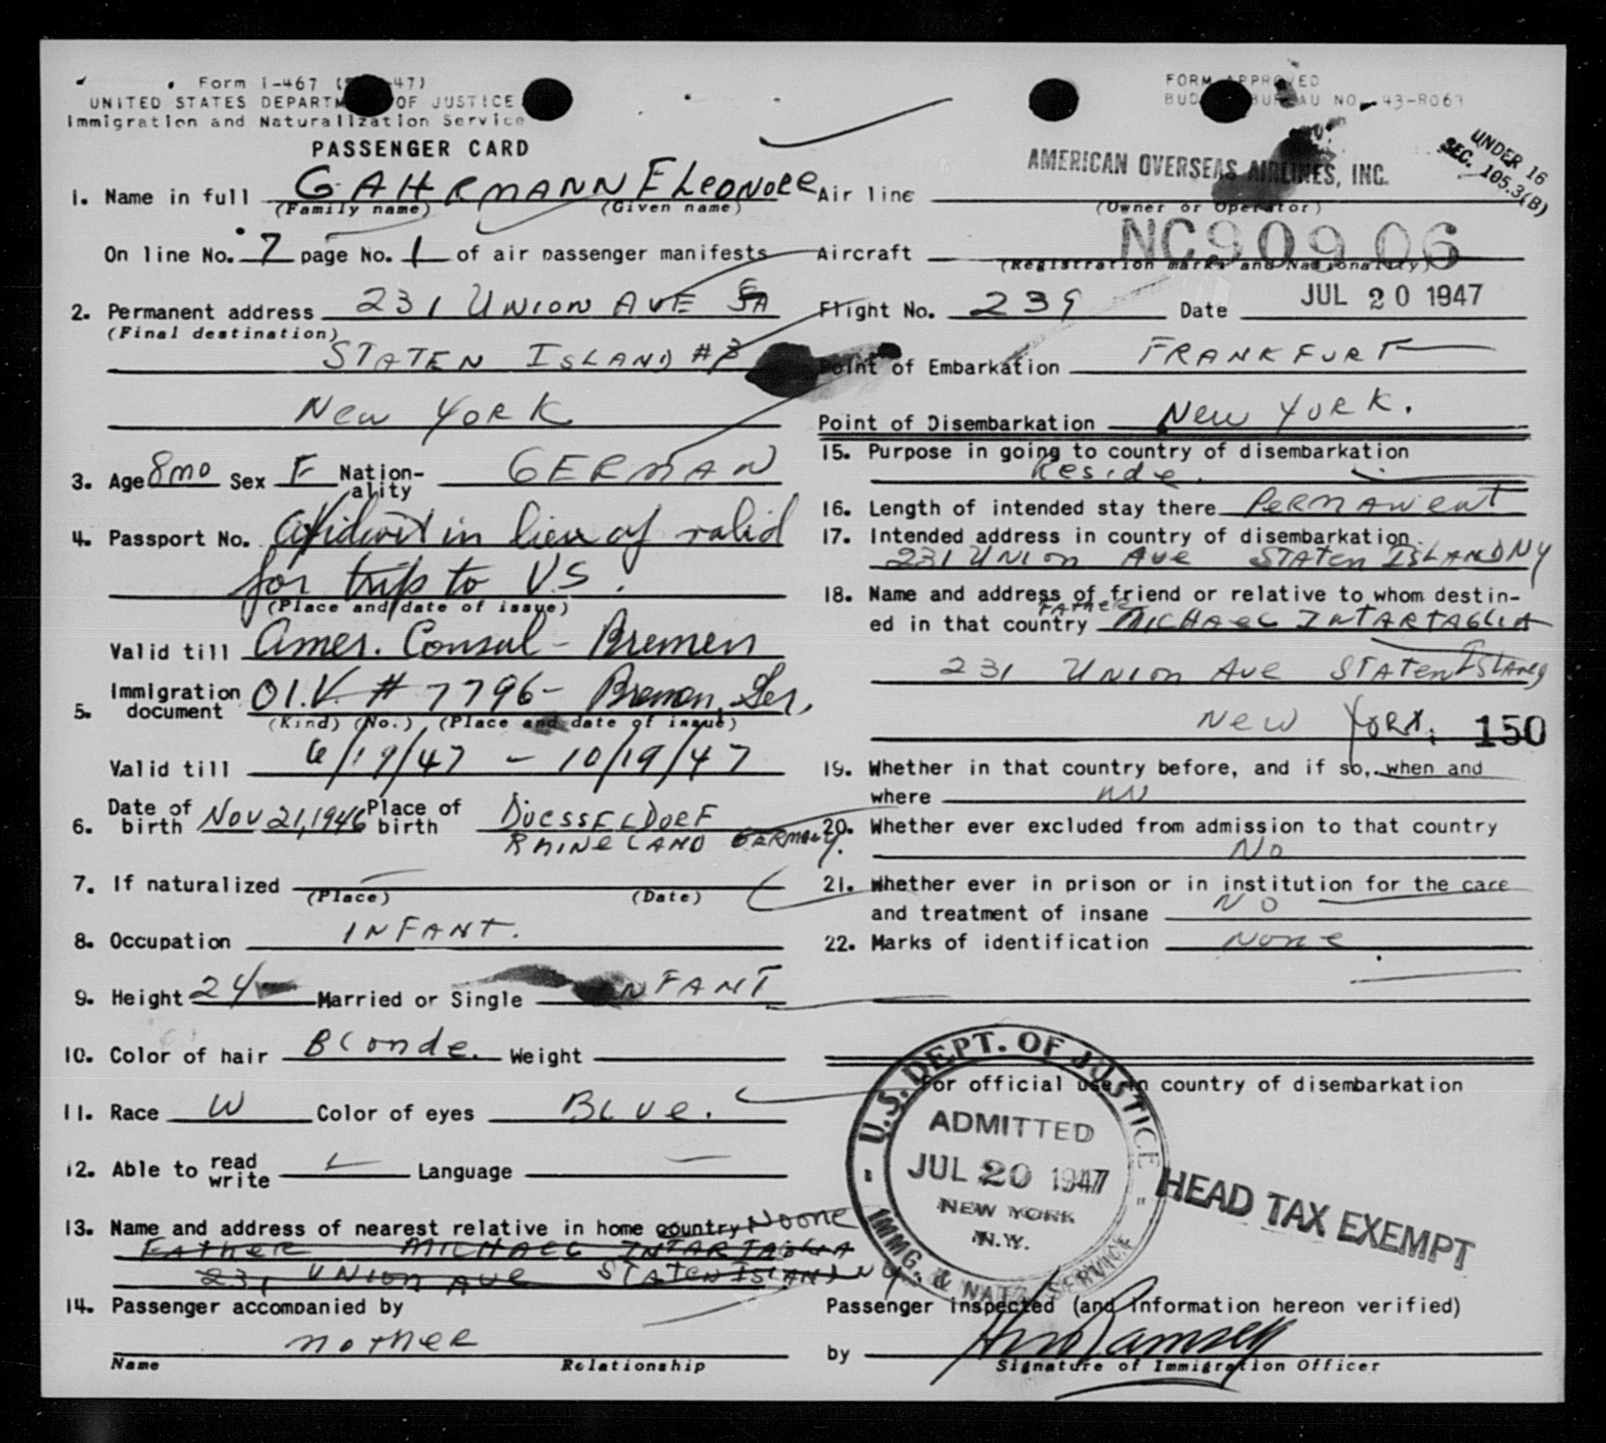 Form I-467 ( 47)
UNITED STATES DEPARTM OF JUSTICE
Immigration and Naturalization Service
PASSENGER CARD
FORM APPROVED
BUD BUREAU NO. 43-R063
UNDER 16
SEC. 105.3(B)
AMERICAN OVERSEAS AIRLINES, INC.
1. Name in full GAHRMANN ELEONORE
(Family name) (Given name)
On line No. 7 page No. 1 of air passenger manifests
2. Permanent address 231 UNION AVE
(Final destination)
STATEN ISLAND #3
NEW YORK
3. Age 8mo Sex F Nation-ality GERMAN
4. Passport No. Affidavit in lieu of valid
for trip to US.
(Place and date of issue)
Valid till Amer. Consul - Bremen
5. Immigration document QIV # 7796- Bremen, Ger.
(Kind) (No.) (Place and date of issue)
Valid till 6/19/47 - 10/19/47
6. Date of birth NOV 21, 1946 Place of birth DUESSELDORF
RHINELAND GERMANY.
7. If naturalized
(Place) (Date)
8. Occupation INFANT.
9. Height 24 Married or Single INFANT
10. Color of hair Blonde. Weight
11. Race W Color of eyes BLUE.
12. Able to read write Language
13. Name and address of nearest relative in home country NOONE
FATHER MICHAEL INTARTAGLIA
231 UNION AVE STATEN ISLAND NY
14. Passenger accompanied by
MOTHER
Name Relationship
Air line
(Owner or Operator)
Aircraft NC90906
(Registration marks and Nationality)
Flight No. 239 Date JUL 20 1947
Point of Embarkation FRANKFURT
Point of Disembarkation NEW YORK.
15. Purpose in going to country of disembarkation
Reside.
16. Length of intended stay there PERMANENT
17. Intended address in country of disembarkation
231 UNION AVE STATEN ISLAND NY
18. Name and address of friend or relative to whom destin-
ed in that country FATHER MICHAEL INTARTAGLIA
231 UNION AVE STATEN ISLAND
NEW YORK. 150
19. Whether in that country before, and if so, when and
where NO
20. Whether ever excluded from admission to that country
NO
21. Whether ever in prison or in institution for the care
and treatment of insane NO
22. Marks of identification NONE
For official use in country of disembarkation
U.S. DEPT. OF JUSTICE
ADMITTED
JUL 20 1947
NEW YORK
N.Y.
IMMG. & NATZ. SERVICE
HEAD TAX EXEMPT
Passenger inspected (and information hereon verified)
by Ramsey
Signature of Immigration Officer